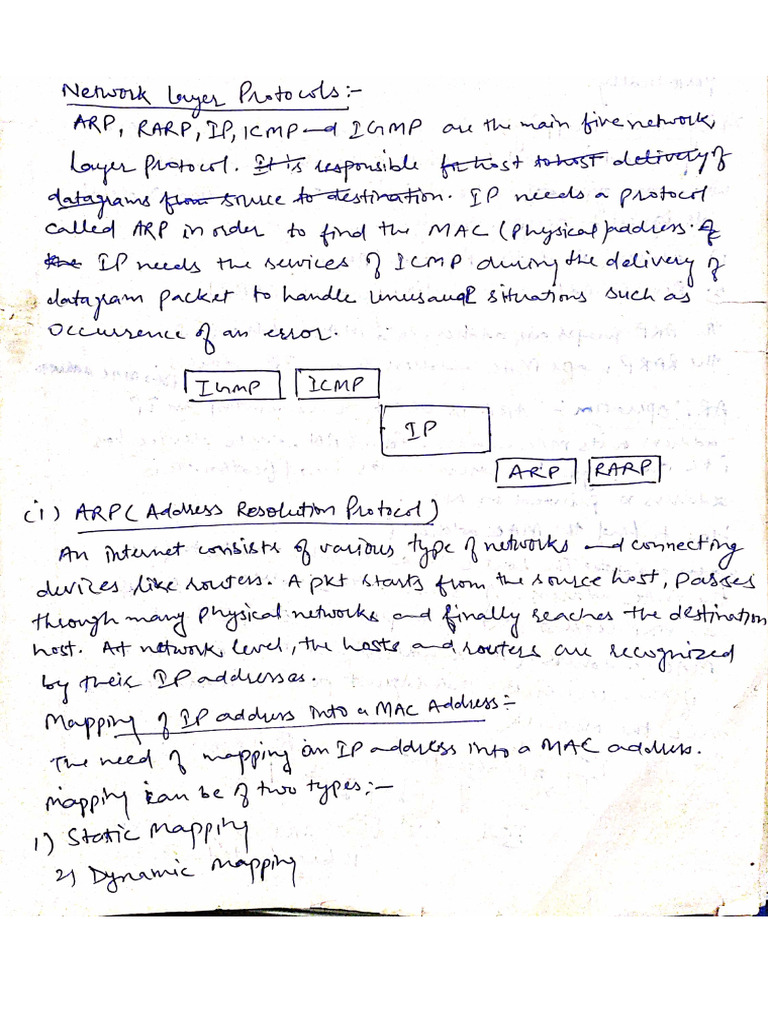 Network Layer Protocols:-
ARP, RARP, IP, ICMP and IGMP are the main five network
Layer protocol. It is responsible for host to host delivery of
datagrams from source to destination. IP needs a protocol
called ARP in order to find the MAC (Physical) address.
IP needs the services of ICMP during the delivery of
datagram packet to handle unusaual situations such as
Occurrence of an error.
IGMP ICMP
IP
ARP RARP
(i) ARP (Address Resolution Protocol)
An internet consists of various type of networks and connecting
devices like routers. A pkt starts from the source host, Passes
through many physical networks and finally reaches the destination
host. At network level, the hosts and routers are recognized
by their IP addresses.
Mapping of IP address into a MAC Address:-
The need of mapping an IP address into a MAC address.
mapping can be of two types:-
1) Static Mapping
2) Dynamic Mapping